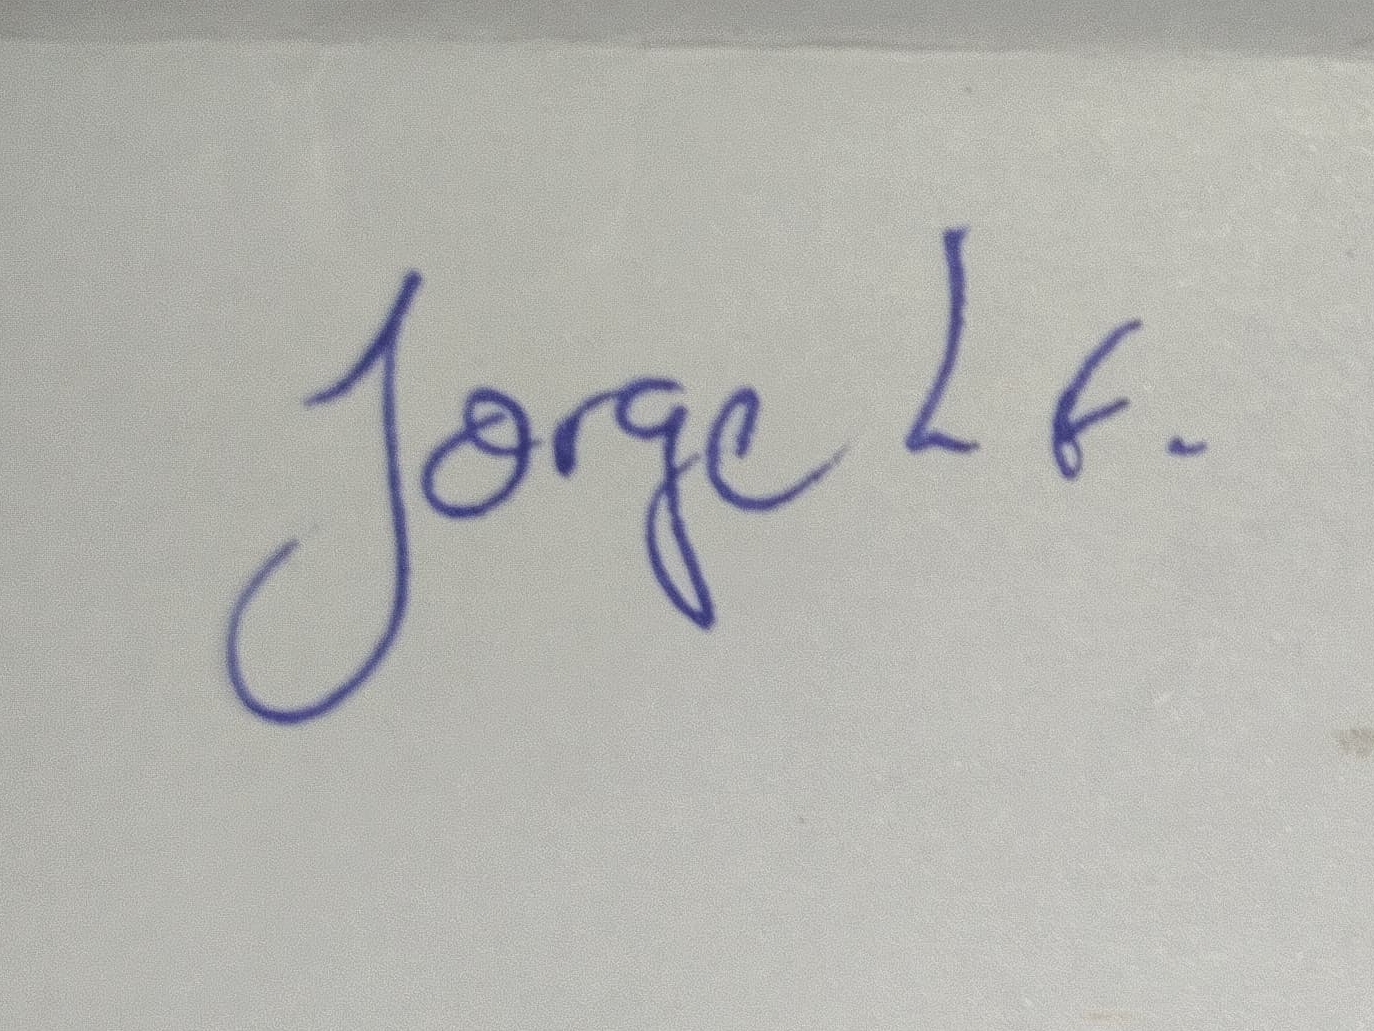 Jorge L F.